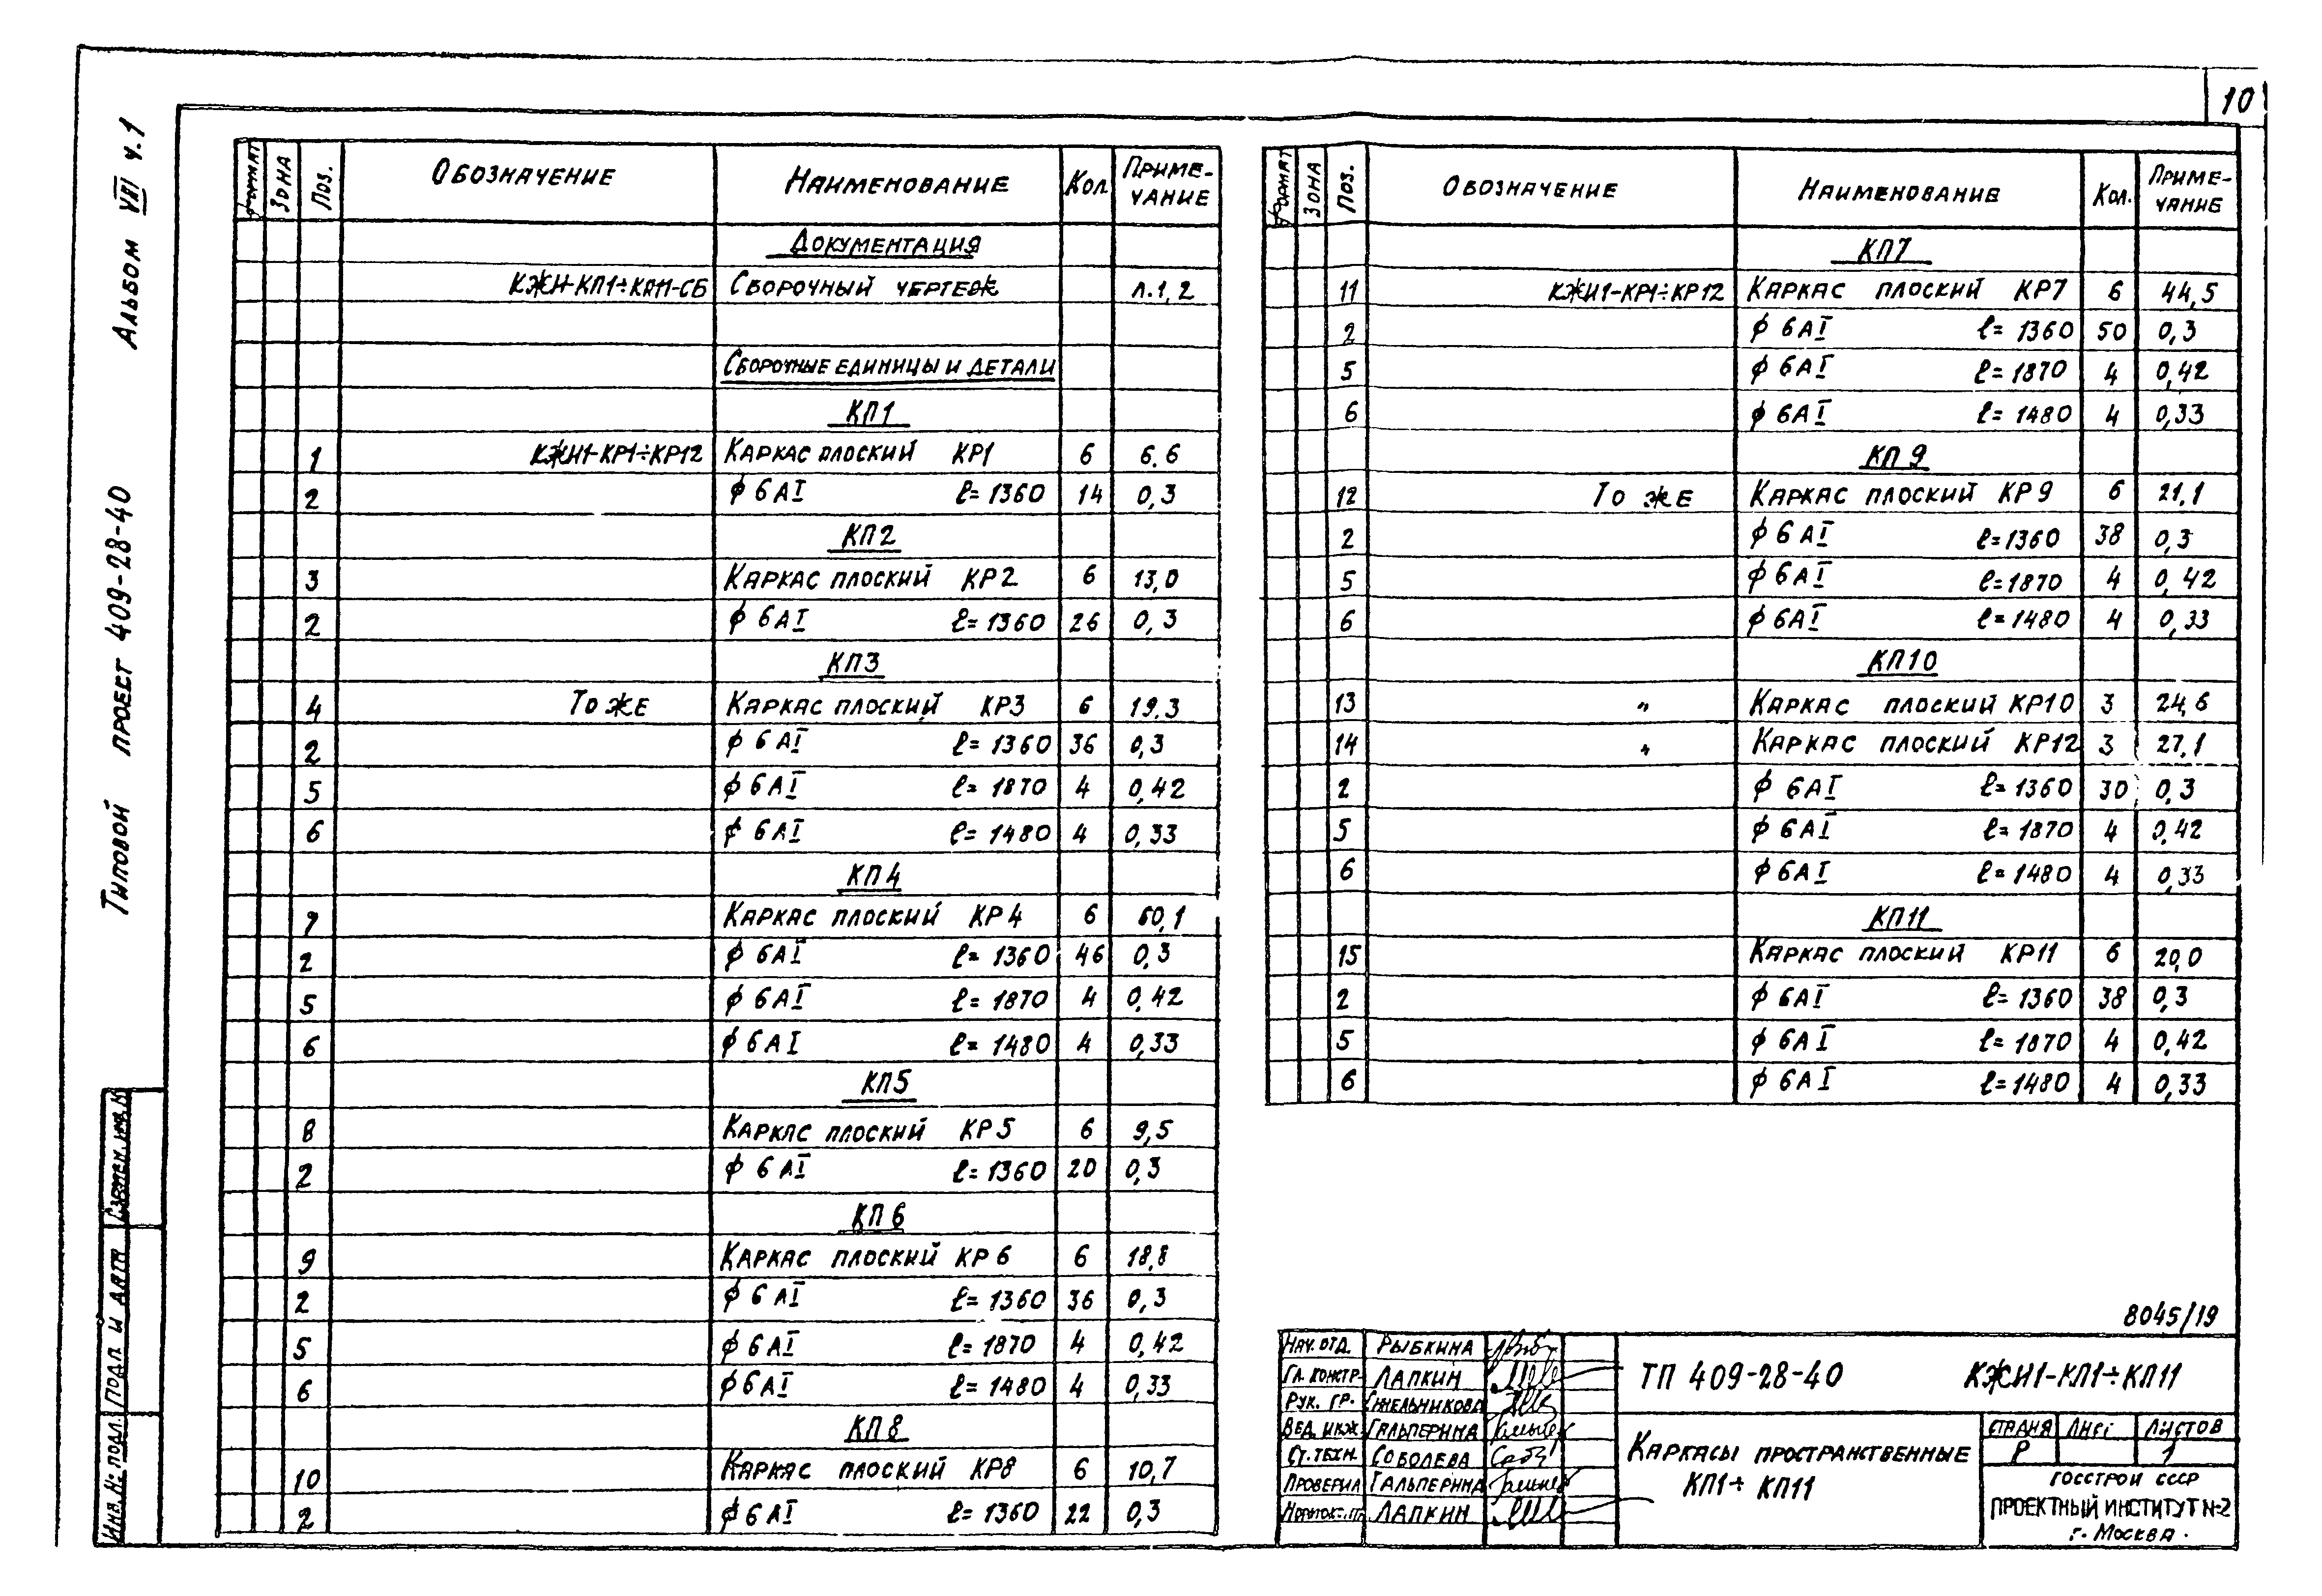 10
Альбом VIII ч.1
Типовой проект 409-28-40
Формат Зона Поз. Обозначение Наименование Кол. Примечание
Документация
КЖИ-КП1÷КП11-СБ Сборочный чертеж л.1,2
Сборочные единицы и детали
КП1
1 КЖИ1-КР1÷КР12 Каркас плоский КР1 6 6.6
2 ф 6АI ℓ=1360 14 0,3
КП2
3 Каркас плоский КР2 6 13,0
2 ф 6АI ℓ=1360 26 0,3
КП3
4 То же Каркас плоский КР3 6 19.3
2 ф 6АI ℓ=1360 36 0,3
5 ф 6АI ℓ=1870 4 0,42
6 ф 6АI ℓ=1480 4 0,33
КП4
7 Каркас плоский КР4 6 60,1
2 ф 6АI ℓ=1360 46 0,3
5 ф 6АI ℓ=1870 4 0,42
6 ф 6АI ℓ=1480 4 0,33
КП5
8 Каркас плоский КР5 6 9,5
2 ф 6АI ℓ=1360 20 0,3
КП6
9 Каркас плоский КР6 6 18,8
2 ф 6АI ℓ=1360 36 0,3
5 ф 6АI ℓ=1870 4 0,42
6 ф 6АI ℓ=1480 4 0,33
КП8
10 Каркас плоский КР8 6 10,7
2 ф 6АI ℓ=1360 22 0,3
Формат Зона Поз. Обозначение Наименование Кол. Примечание
КП7
11 КЖИ1-КР1÷КР12 Каркас плоский КР7 6 44,5
2 ф 6АI ℓ=1360 50 0,3
5 ф 6АI ℓ=1870 4 0,42
6 ф 6АI ℓ=1480 4 0,33
КП9
12 То же Каркас плоский КР9 6 21,1
2 ф 6АI ℓ=1360 38 0,3
5 ф 6АI ℓ=1870 4 0,42
6 ф 6АI ℓ=1480 4 0,33
КП10
13 " Каркас плоский КР10 3 24,6
14 " Каркас плоский КР12 3 27,1
2 ф 6АI ℓ=1360 30 0,3
5 ф 6АI ℓ=1870 4 0,42
6 ф 6АI ℓ=1480 4 0,33
КП11
15 Каркас плоский КР11 6 20,0
2 ф 6АI ℓ=1360 38 0,3
5 ф 6АI ℓ=1870 4 0,42
6 ф 6АI ℓ=1480 4 0,33
8045/19
Нач. отд. Рыбкина
Гл. констр. Лапкин
Рук. гр. Синельникова
Вед. инж. Гальперина
Ст. техн. Соболева
Проверил Гальперина
Лапкин
ТП 409-28-40 КЖИ1-КП1÷КП11
Каркасы пространственные
КП1÷КП11
Стадия Лист Листов
Р 1
Госстрой СССР
Проектный институт №2
г. Москва.
Инв. № подл. Подп. и дата Взамен инв. №